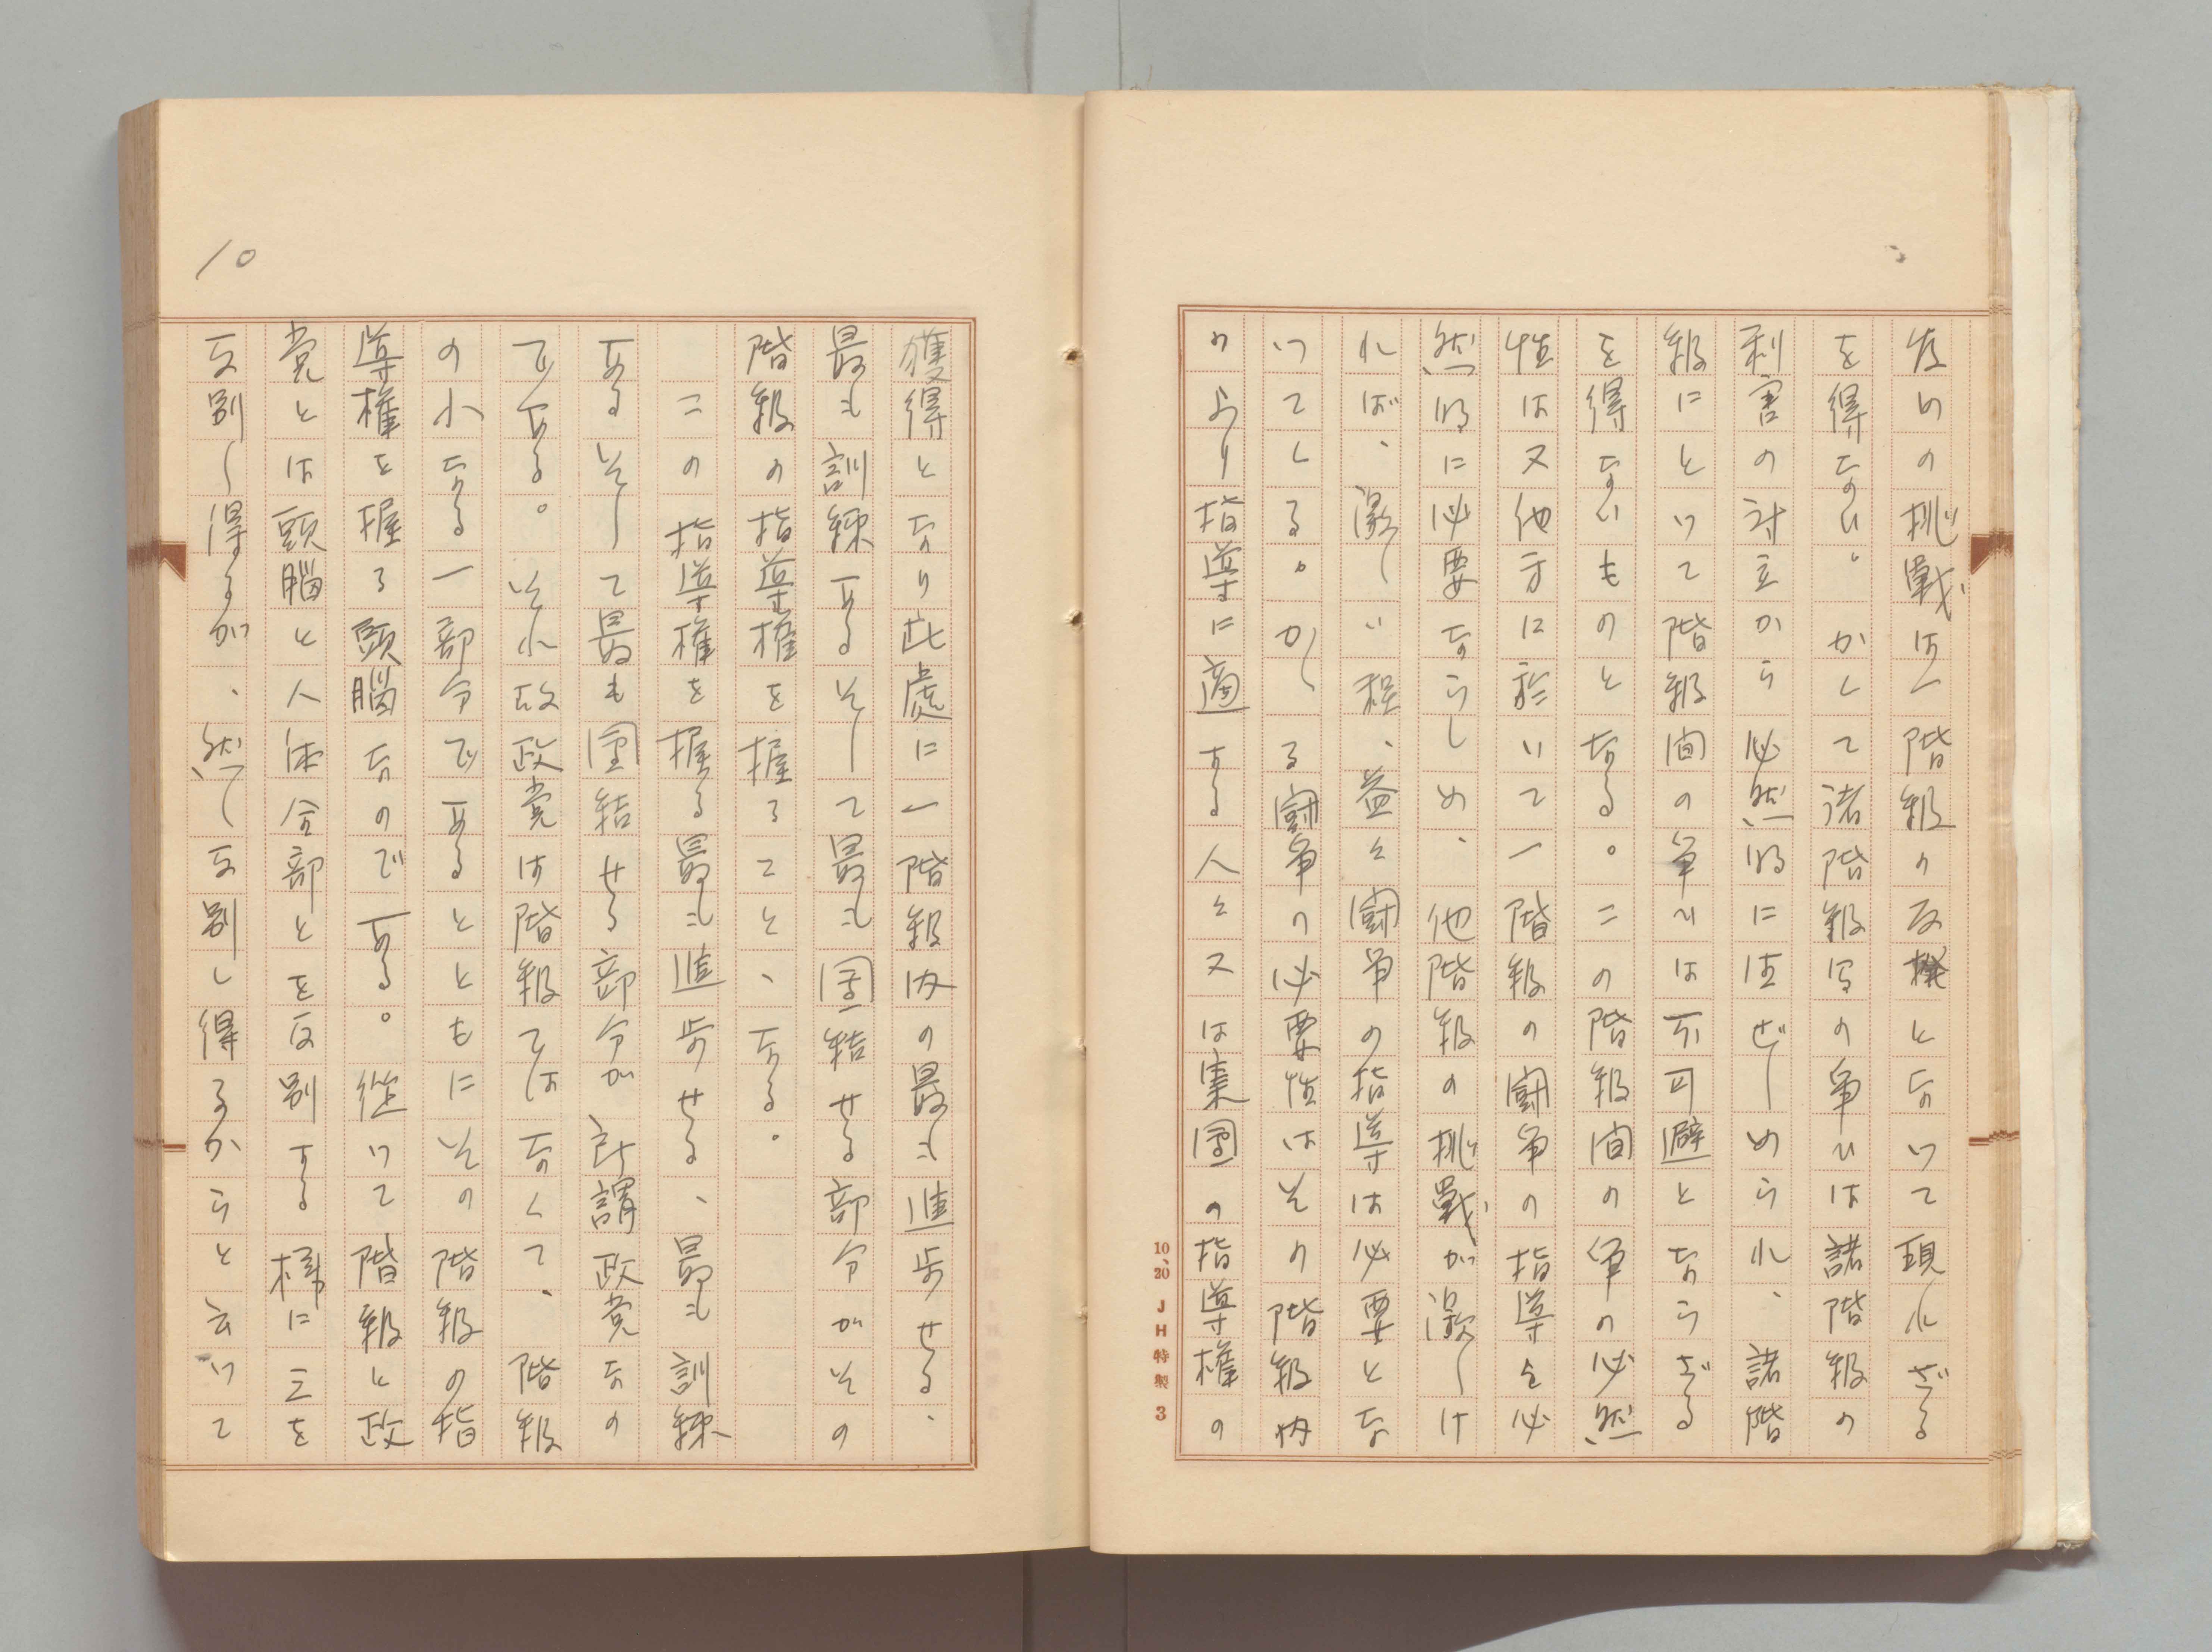 度の挑戦は一階級の反機となつて現れざる
を得ない。かくて諸階級間の争ひは諸階級の
利害の対立から必然的に生ぜしめられ、諸階
級にとつて階級間の争ひは不可避とならざる
を得ないものとなる。この階級間の争の必然
性は又他方に於いて一階級の闘争の指導を必
然的に必要ならしめ、他階級の挑戦が激しけ
れば、激しい程、益々闘争の指導は必要とな
つてくる。かゝる闘争の必要性はその階級内
のより指導に適する人々又は集團の指導権の
10、20 JH特製 3
10
獲得となり此處に一階級内の最も進歩せる、
最も訓練あるそして最も團結せる部分がその
階級の指導権を握ること、なる。
この指導権を握る最も進歩せる、最も訓練
あるそして最も團結せる部分が所謂政党なの
である。それ故政党は階級ではなくて、階級
の小なる一部分であるとともにその階級の指
導権を握る頭腦なのである。従つて階級と政
党とは頭腦と人体全部とを区別する様に之を
区別し得るが、然し区別し得るからと云つて